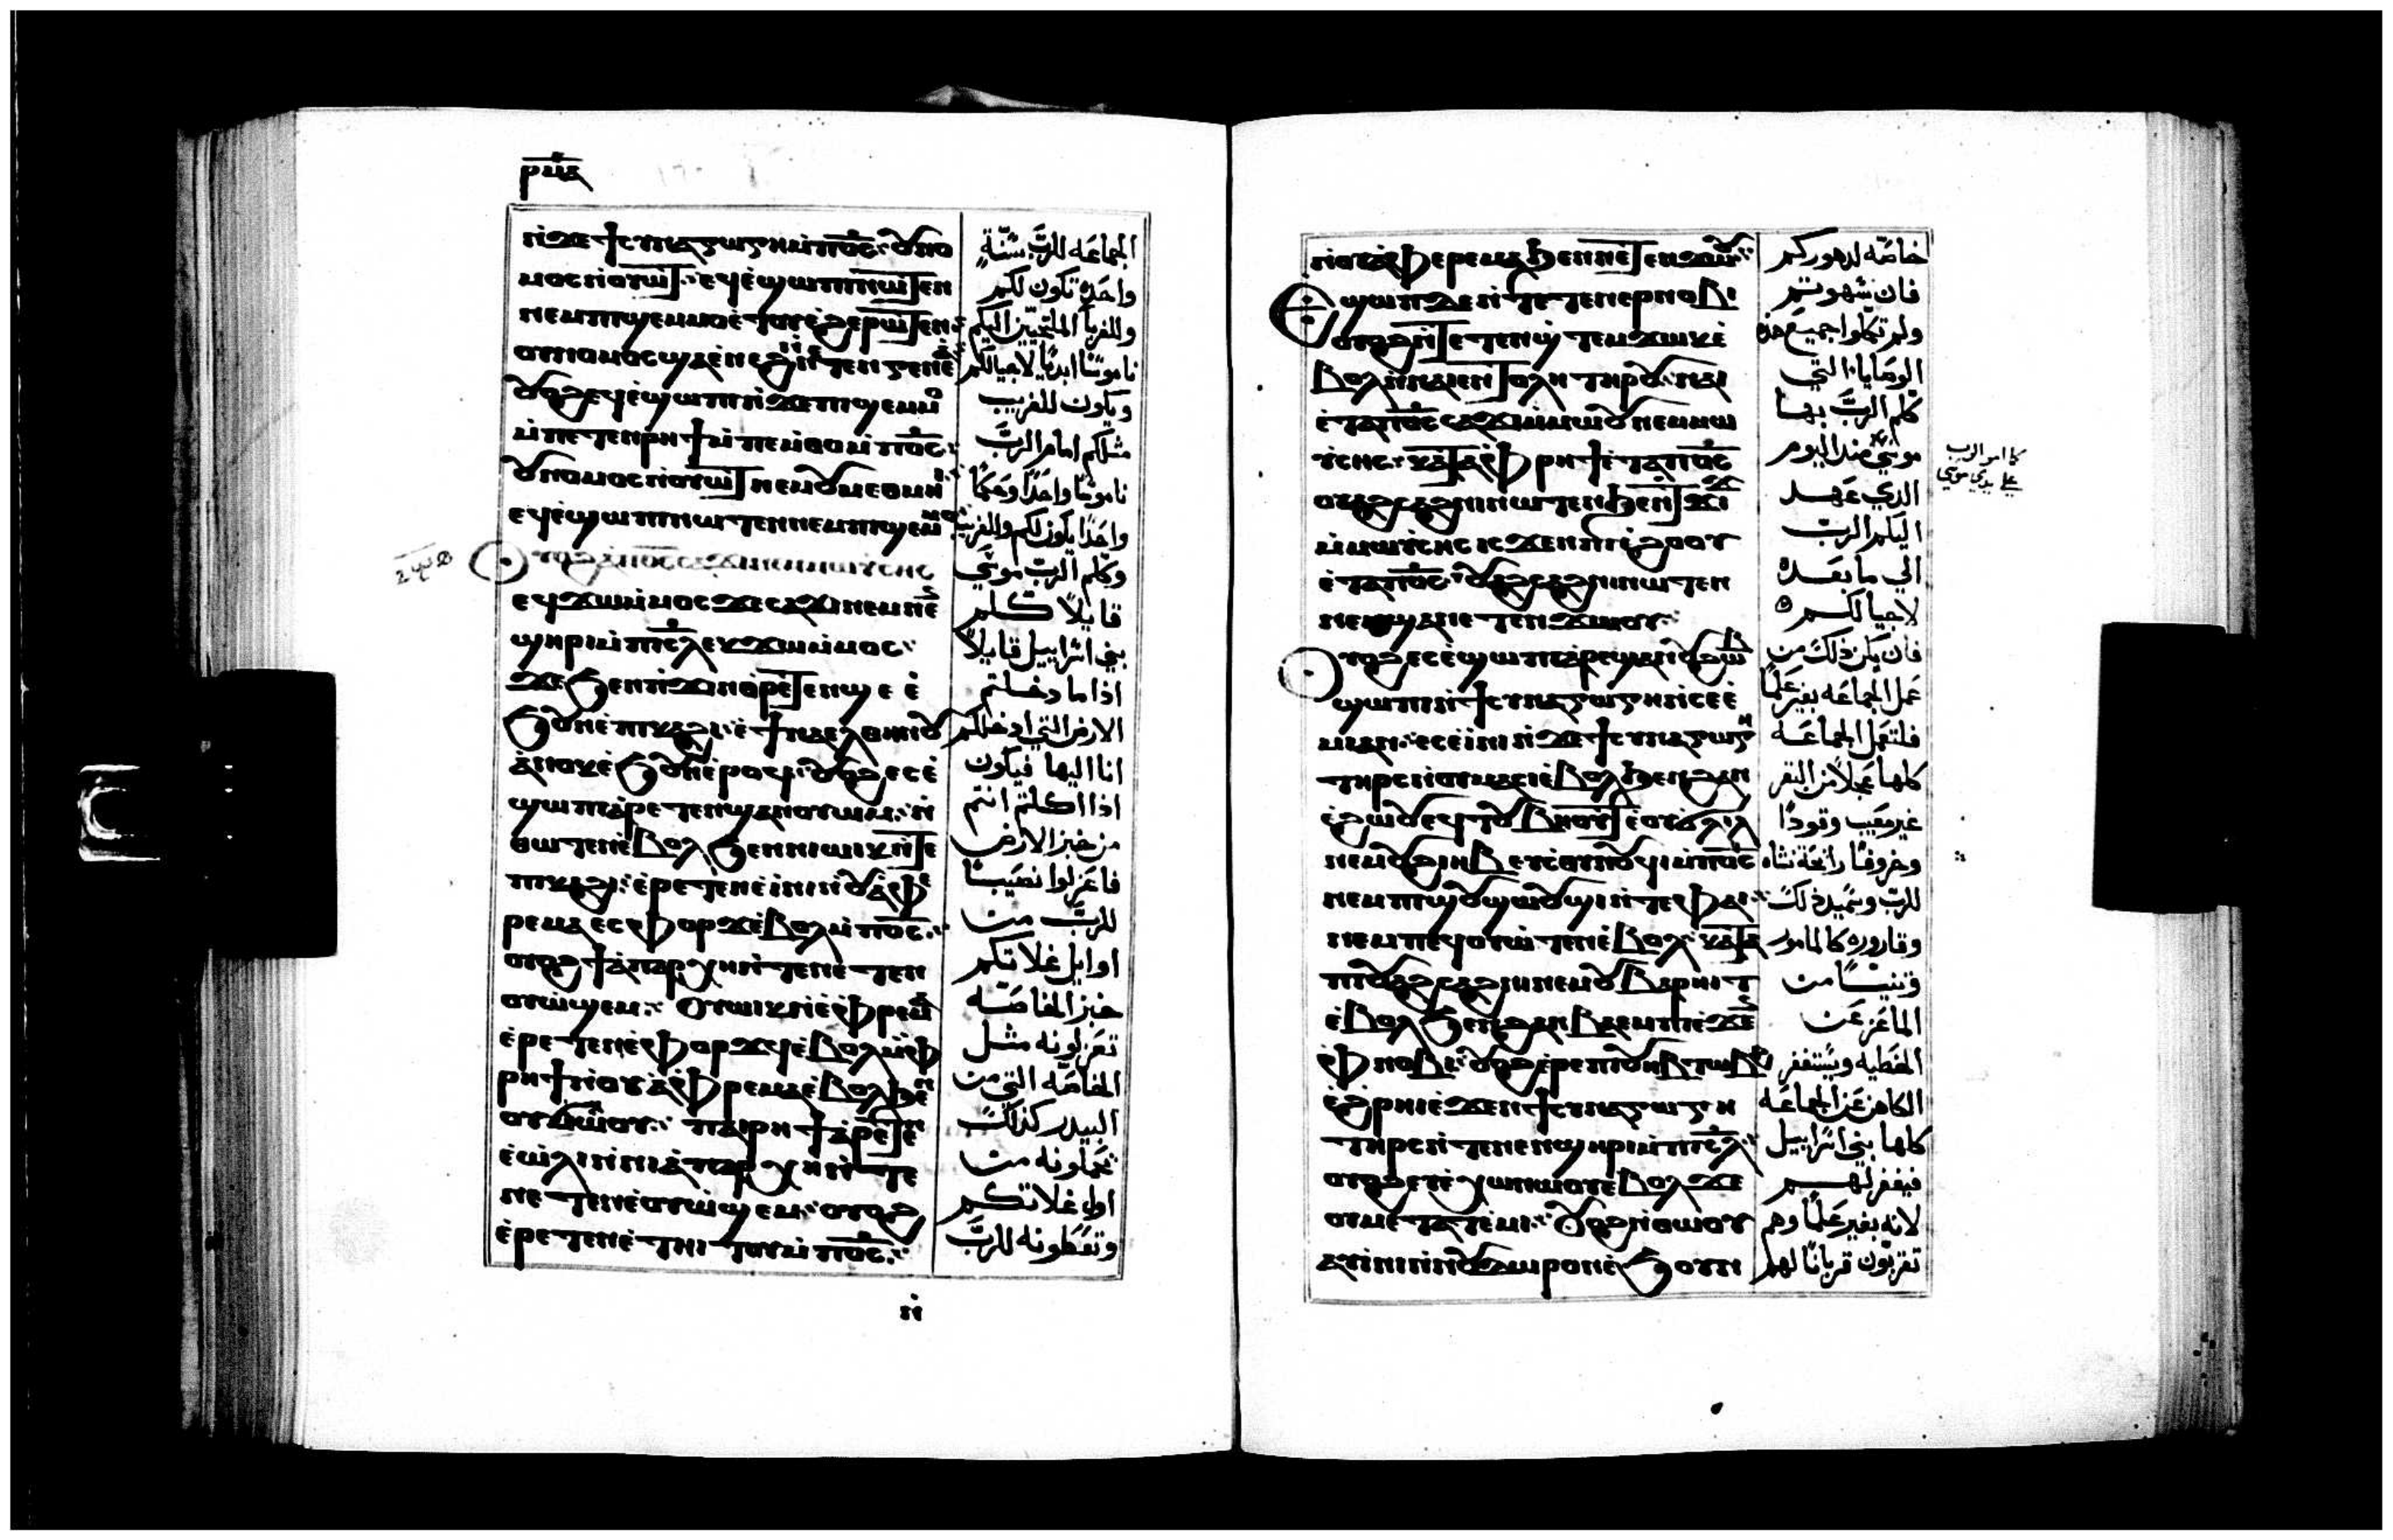 ⲣⲙⲍ
ⲛϫⲉϯⲥⲩⲛⲁⲅⲱⲅⲏ ⲙⲡϭⲥ ⲟⲩⲛⲟ
ⲙⲟⲥ ⲛⲟⲩⲱⲧ ⲉϥⲉϣⲱⲡⲓ ⲛⲱⲧⲉⲛ
ⲛⲉⲙ ⲡⲓϣⲉⲙⲙⲟ ⲉⲧⲟⲩⲉϩ ⲉⲣⲱⲧⲉⲛ
ⲟⲩⲛⲟⲙⲟⲥ ϣⲁ ⲉⲛⲉϩ
ⲟⲩⲟϩ ⲉϥⲉϣⲱⲡⲓ ⲛϫⲉ ⲡⲓϣⲉⲙⲙⲟ
ⲙⲡⲉⲧⲉⲛⲣⲏϯ ⲙⲡⲉⲙⲑⲟ ⲙⲡϭⲥ
ⲟⲩⲛⲟⲙⲟⲥ ⲛⲟⲩⲱⲧ ⲛⲉⲙ
ⲉϥⲉϣⲱⲡⲓ ⲛⲱⲧⲉⲛ ⲛⲉⲙ ⲡⲓϣⲉⲙⲙⲟ
ⲟⲩⲟϩ ⲁⲡϭⲥ ⲥⲁϫⲓ ⲛⲉⲙ ⲙⲱⲩⲥⲏⲥ
ⲉϥϫⲱ ⲙⲙⲟⲥ ϫⲉ ⲥⲁϫⲓ ⲛⲉⲙ ⲛⲉⲛ
ϣⲏⲣⲓ ⲙⲡⲓⲥⲗ ⲉⲕϫⲱ ⲙⲙⲟⲥ
ϫⲉ ϧⲉⲛ ⲡϫⲓⲛⲑⲣⲉⲧⲉⲛϣⲉ ⲉ
ϧⲟⲩⲛ ⲉⲡⲓⲕⲁϩⲓ ⲉϯⲛⲁⲉⲗⲑⲏⲛⲟⲩ
ⲁⲛⲟⲕ ⲉϧⲟⲩⲛ ⲉⲣⲟϥ ⲟⲩⲟϩ ⲉⲥⲉ
ϣⲱⲡ ⲁⲣⲉⲧⲉⲛϣⲁⲛⲟⲩⲱⲙ ⲛ
ⲑⲱⲧⲉⲛ ⲉⲃⲟⲗ ϧⲉⲛ ⲛⲓⲱⲓⲕ ⲛⲧⲉ
ⲡⲓⲕⲁϩⲓ ⲉⲣⲉⲧⲉⲛⲉⲓⲛⲓ ⲛⲟⲩⲁⲫⲉ
ⲣⲉⲙⲁ ⲉⲥⲫⲟⲣϫ ⲉⲃⲟⲗ ⲙⲡϭⲥ
ⲟⲩⲟϩ ϯⲁⲡⲁⲣⲭⲏ ⲛⲧⲉ ⲛⲉⲧⲉⲛ
ⲟⲩⲱϣⲉⲙ ⲟⲩⲱⲓⲕ ⲛⲉⲫⲣⲉⲙⲁ
ⲉⲣⲉⲧⲉⲛⲉⲫⲟⲣϫϥ ⲉⲃⲟⲗ ⲙⲫ
ⲣⲏϯ ⲛⲟⲩⲁⲫⲣⲉⲙⲁ ⲉⲃⲟⲗ ϧⲉⲛ
ⲟⲩϭⲛⲱⲟⲩ ⲡⲁⲓⲣⲏϯ ⲁⲣⲉⲧⲉⲛ
ⲉⲱⲗⲓ ⲛⲛⲓⲁⲡⲁⲣⲭⲏ ⲛⲧⲉ
ⲛⲉⲧⲉⲛⲟⲩⲱϣⲉⲙ ⲟⲩⲟϩ
ⲉⲣⲉⲧⲉⲛⲉⲧⲏⲓⲧⲟⲩ ⲙⲡϭⲥ
ⲛ
الجماعه للرب سُنّة
واحده تكون لكم
وللغربا الملتجيين اليكم
ناموسًا ابديًا لاجيالكم
ويكون للغريب
مثلكم امام الرب
ناموسًا واحدًا وحكمًا
واحدًا يكون لكم وللغريب
وكلم الرب موسي
قايلاً كلم
بني اسراييل قايلاً
اذا ما دخلتم
الارض التي ادخلكم
انا اليها فيكون
اذا اكلتم انتم
من خبز الارض
فاعزلوا نصيبًا
للرب من
اوايل غلاتكم
خبز الخاصّه
تعزلونه مثل
الخاصّه التي من
البيدر كذلك
تحملونه من
اول غلاتكم
وتعطونه للرب
ⲛⲟⲩⲁⲫⲉⲣⲉⲙⲁ ϧⲉⲛ ⲛⲉⲧⲉⲛϫⲱⲟⲩ
ⲉϣⲱⲡ ⲇⲉ ⲛⲧⲉⲧⲉⲛⲉⲣⲛⲟⲃⲓ
ⲟⲩⲟϩ ⲛⲧⲉⲧⲉⲛϣⲧⲉⲙϫⲱⲕ ⲉ
ⲃⲟⲗ ⲛⲛⲁⲓⲉⲛⲧⲟⲗⲏ ⲧⲏⲣⲟⲩ ⲛⲁⲓ
ⲉⲧⲁⲡϭⲥ ⲥⲁϫⲓ ⲙⲙⲱⲟⲩ ⲛⲉⲙ ⲙⲱ
ⲩⲥⲏⲥ ⲕⲁⲧⲁ ⲫⲣⲏϯ ⲉⲧⲁⲡϭⲥ
ⲟⲩⲁϩⲥⲁϩⲛⲓ ⲛⲱⲧⲉⲛ ϧⲉⲛ ⲧϫⲓϫ
ⲙⲙⲱⲩⲥⲏⲥ ⲓⲥϫⲉⲛ ⲡⲓⲉϩⲟⲟⲩ
ⲉⲧⲁⲡϭⲥ ⲟⲩⲁϩⲥⲁϩⲛⲓ ⲛⲱⲧⲉⲛ
ⲛⲉⲙ ϣⲁ ⲛⲉⲧⲉⲛϫⲱⲟⲩ
ⲟⲩⲟϩ ⲉⲥⲉϣⲱⲡ ⲁⲣⲉϣⲁⲛ ⲟⲩϩⲱⲃ
ϣⲱⲡⲓ ⲛϯⲥⲩⲛⲁⲅⲱⲅⲏ ⲛⲥⲉⲉ
ⲙⲓ ⲁⲛ ⲉⲥⲉⲓⲛⲓ ⲛϫⲉ ϯⲥⲩⲛⲁⲅⲱⲅⲏ
ⲧⲏⲣⲥ ⲛⲟⲩⲙⲁⲥⲓ ⲉⲃⲟⲗ ϧⲉⲛ ϩⲁⲛ
ⲉϩⲱⲟⲩ ⲉϥⲧⲟⲩⲃⲏⲟⲩⲧ ⲉⲟⲩϭⲗⲓⲗ
ⲛⲉⲙ ⲟⲩϩⲓⲏⲃ ⲉⲩⲥⲑⲟⲓⲛⲟⲩϥⲓ ⲙⲡϭⲥ
ⲛⲉⲙ ⲡⲓϣⲟⲩϣⲱⲟⲩϣⲓ ⲛⲧⲉ ⲫⲁⲓ
ⲛⲉⲙ ⲡⲉϥⲟⲩⲱⲧⲉⲛ ⲉⲃⲟⲗ ⲕⲁⲧⲁ
ⲡⲓⲟⲩⲁϩⲥⲁϩⲛⲓ ⲛⲉⲙ ⲟⲩⲃⲁⲣⲏⲓⲧ
ⲉⲃⲟⲗ ϧⲉⲛ ϩⲁⲛⲃⲁⲉⲙⲡⲓ ⲉϫⲉⲛ
ⲫⲛⲟⲃⲓ ⲟⲩⲟϩ ⲉⲣⲉ ⲡⲓⲟⲩⲏⲃ ⲧⲱⲃϩ
ⲉϩⲣⲏⲓ ⲉϫⲉⲛ ϯⲥⲩⲛⲁⲅⲱⲅⲏ
ⲧⲏⲣⲥ ⲛⲧⲉ ⲛⲉⲛϣⲏⲣⲓ ⲙⲡⲓⲥⲗ
ⲟⲩⲟϩ ⲉⲩⲉⲭⲱ ⲛⲱⲟⲩ ⲉⲃⲟⲗ ϫⲉ
ⲟⲩⲙⲉⲧⲁⲧⲉⲙⲓ ⲟⲩⲟϩ ⲛⲑⲱⲟⲩ
ⲁⲩⲓⲛⲓ ⲛⲟⲩⲇⲱⲣⲟⲛ ⲉϧⲟⲩⲛ
خاصّه لدهوركم
فان شهوتم
ولم تكملوا جميع هذه
الوصايا التي
كلّم الرب بها
موسي منذ اليوم
الذي عهد
اليكم الرب
الي ما بعده
لاجيالكم
فان يكن ذلك من
عمل الجماعه بغير علمًا
فلتعمل الجماعه
كلها عجلاً من البقر
غير معيب وقودًا
وخروفًا رائحة نشاه
للرب وسميد ذلك
وقاروره كالمامور
وتيسًا من
الماعز عن
الخطيه ويستغفر
الكاهن عن الجماعه
كلها بني اسراييل
فيغفر لهم
لانه بغير علمًا وهم
تقربون قربانًا لهم
كما امر الرب
علي يدي موسي